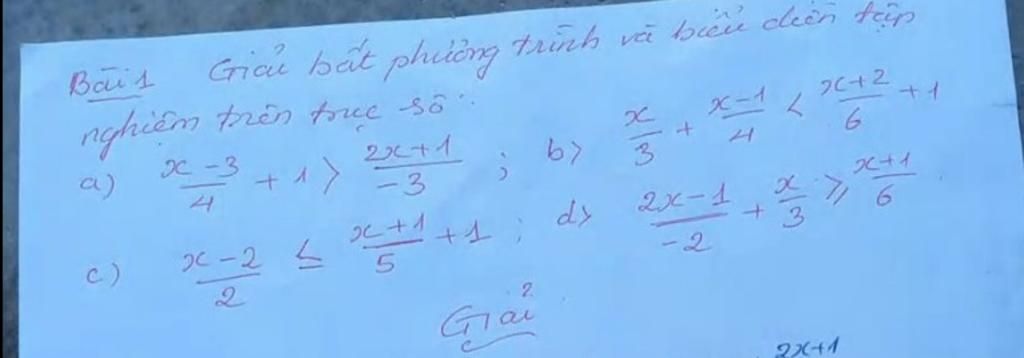 Bài 1 Giải bất phương trình và biểu diễn tập
nghiệm trên trục số:
a) \frac{x-3}{4} + 1 > \frac{2x+1}{-3} ; b) \frac{x}{3} + \frac{x-1}{4} < \frac{x+2}{6} + 1
c) \frac{x-2}{2} ≤ \frac{x+1}{5} + 1 ; d) \frac{2x-1}{-2} + \frac{x}{3} ≥ \frac{x+1}{6}
Giải
2x+1